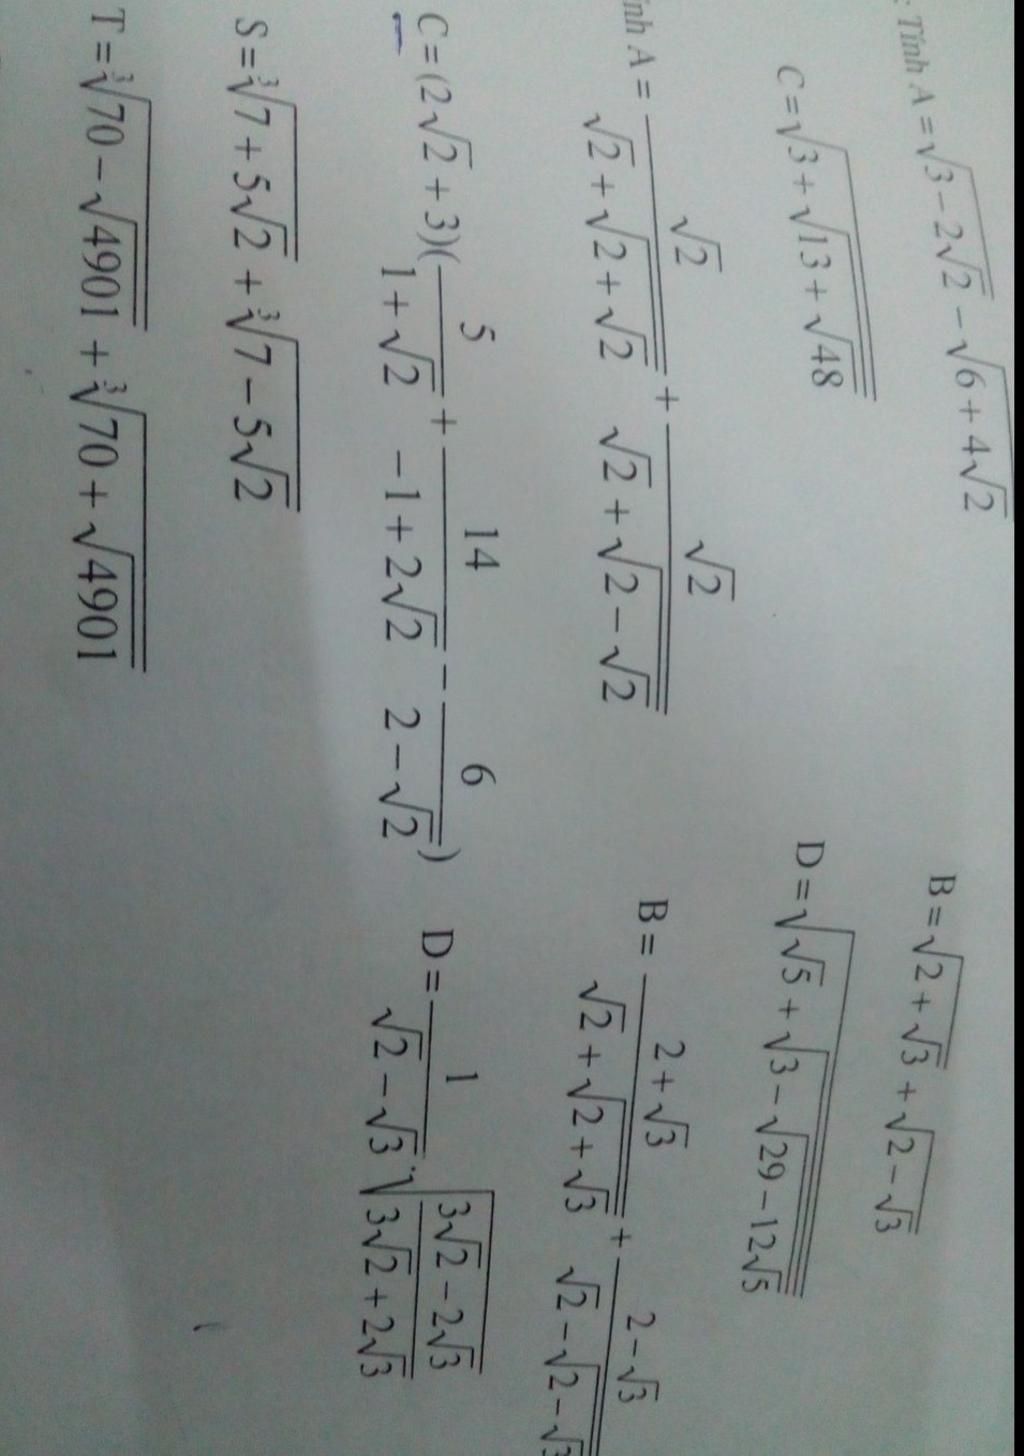 : Tính A = √(3 − 2√2) − √(6 + 4√2) B = √(2 + √3) + √(2 − √3)
C = √(3 + √(13 + √48)) D = √(√5 + √(3 − √(29 − 12√5)))
ính A = √2/(√2 + √(2 + √2)) + √2/(√2 + √(2 − √2)) B = (2 + √3)/(√2 + √(2 + √3)) + (2 − √3)/(√2 − √(2 − √3))
C = (2√2 + 3)(5/(1 + √2) + 14/(−1 + 2√2) − 6/(2 − √2)) D = 1/(√2 − √3) . √((3√2 − 2√3)/(3√2 + 2√3))
S = ∛(7 + 5√2) + ∛(7 − 5√2)
T = ∛(70 − √4901) + ∛(70 + √4901)